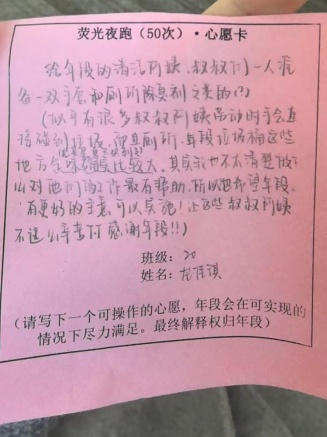 荧光夜跑（50次）·心愿卡
给年段的清洁阿姨、叔叔们一人准
备一双手套和厕所除臭剂之类的(?)
(似乎有很多叔叔阿姨劳动时手会直
接碰到垃圾，而且厕所、年段垃圾桶这些
地方气味比较大，其实我也不太清楚做什
么对他们的工作最有帮助，所以也希望年段
有更好的主意可以实施！让这些叔叔阿姨
不这么辛苦！感谢年段!!)
班级：20
姓名：龙
（请写下一个可操作的心愿，年段会在可实现的
情况下尽力满足。最终解释权归年段）